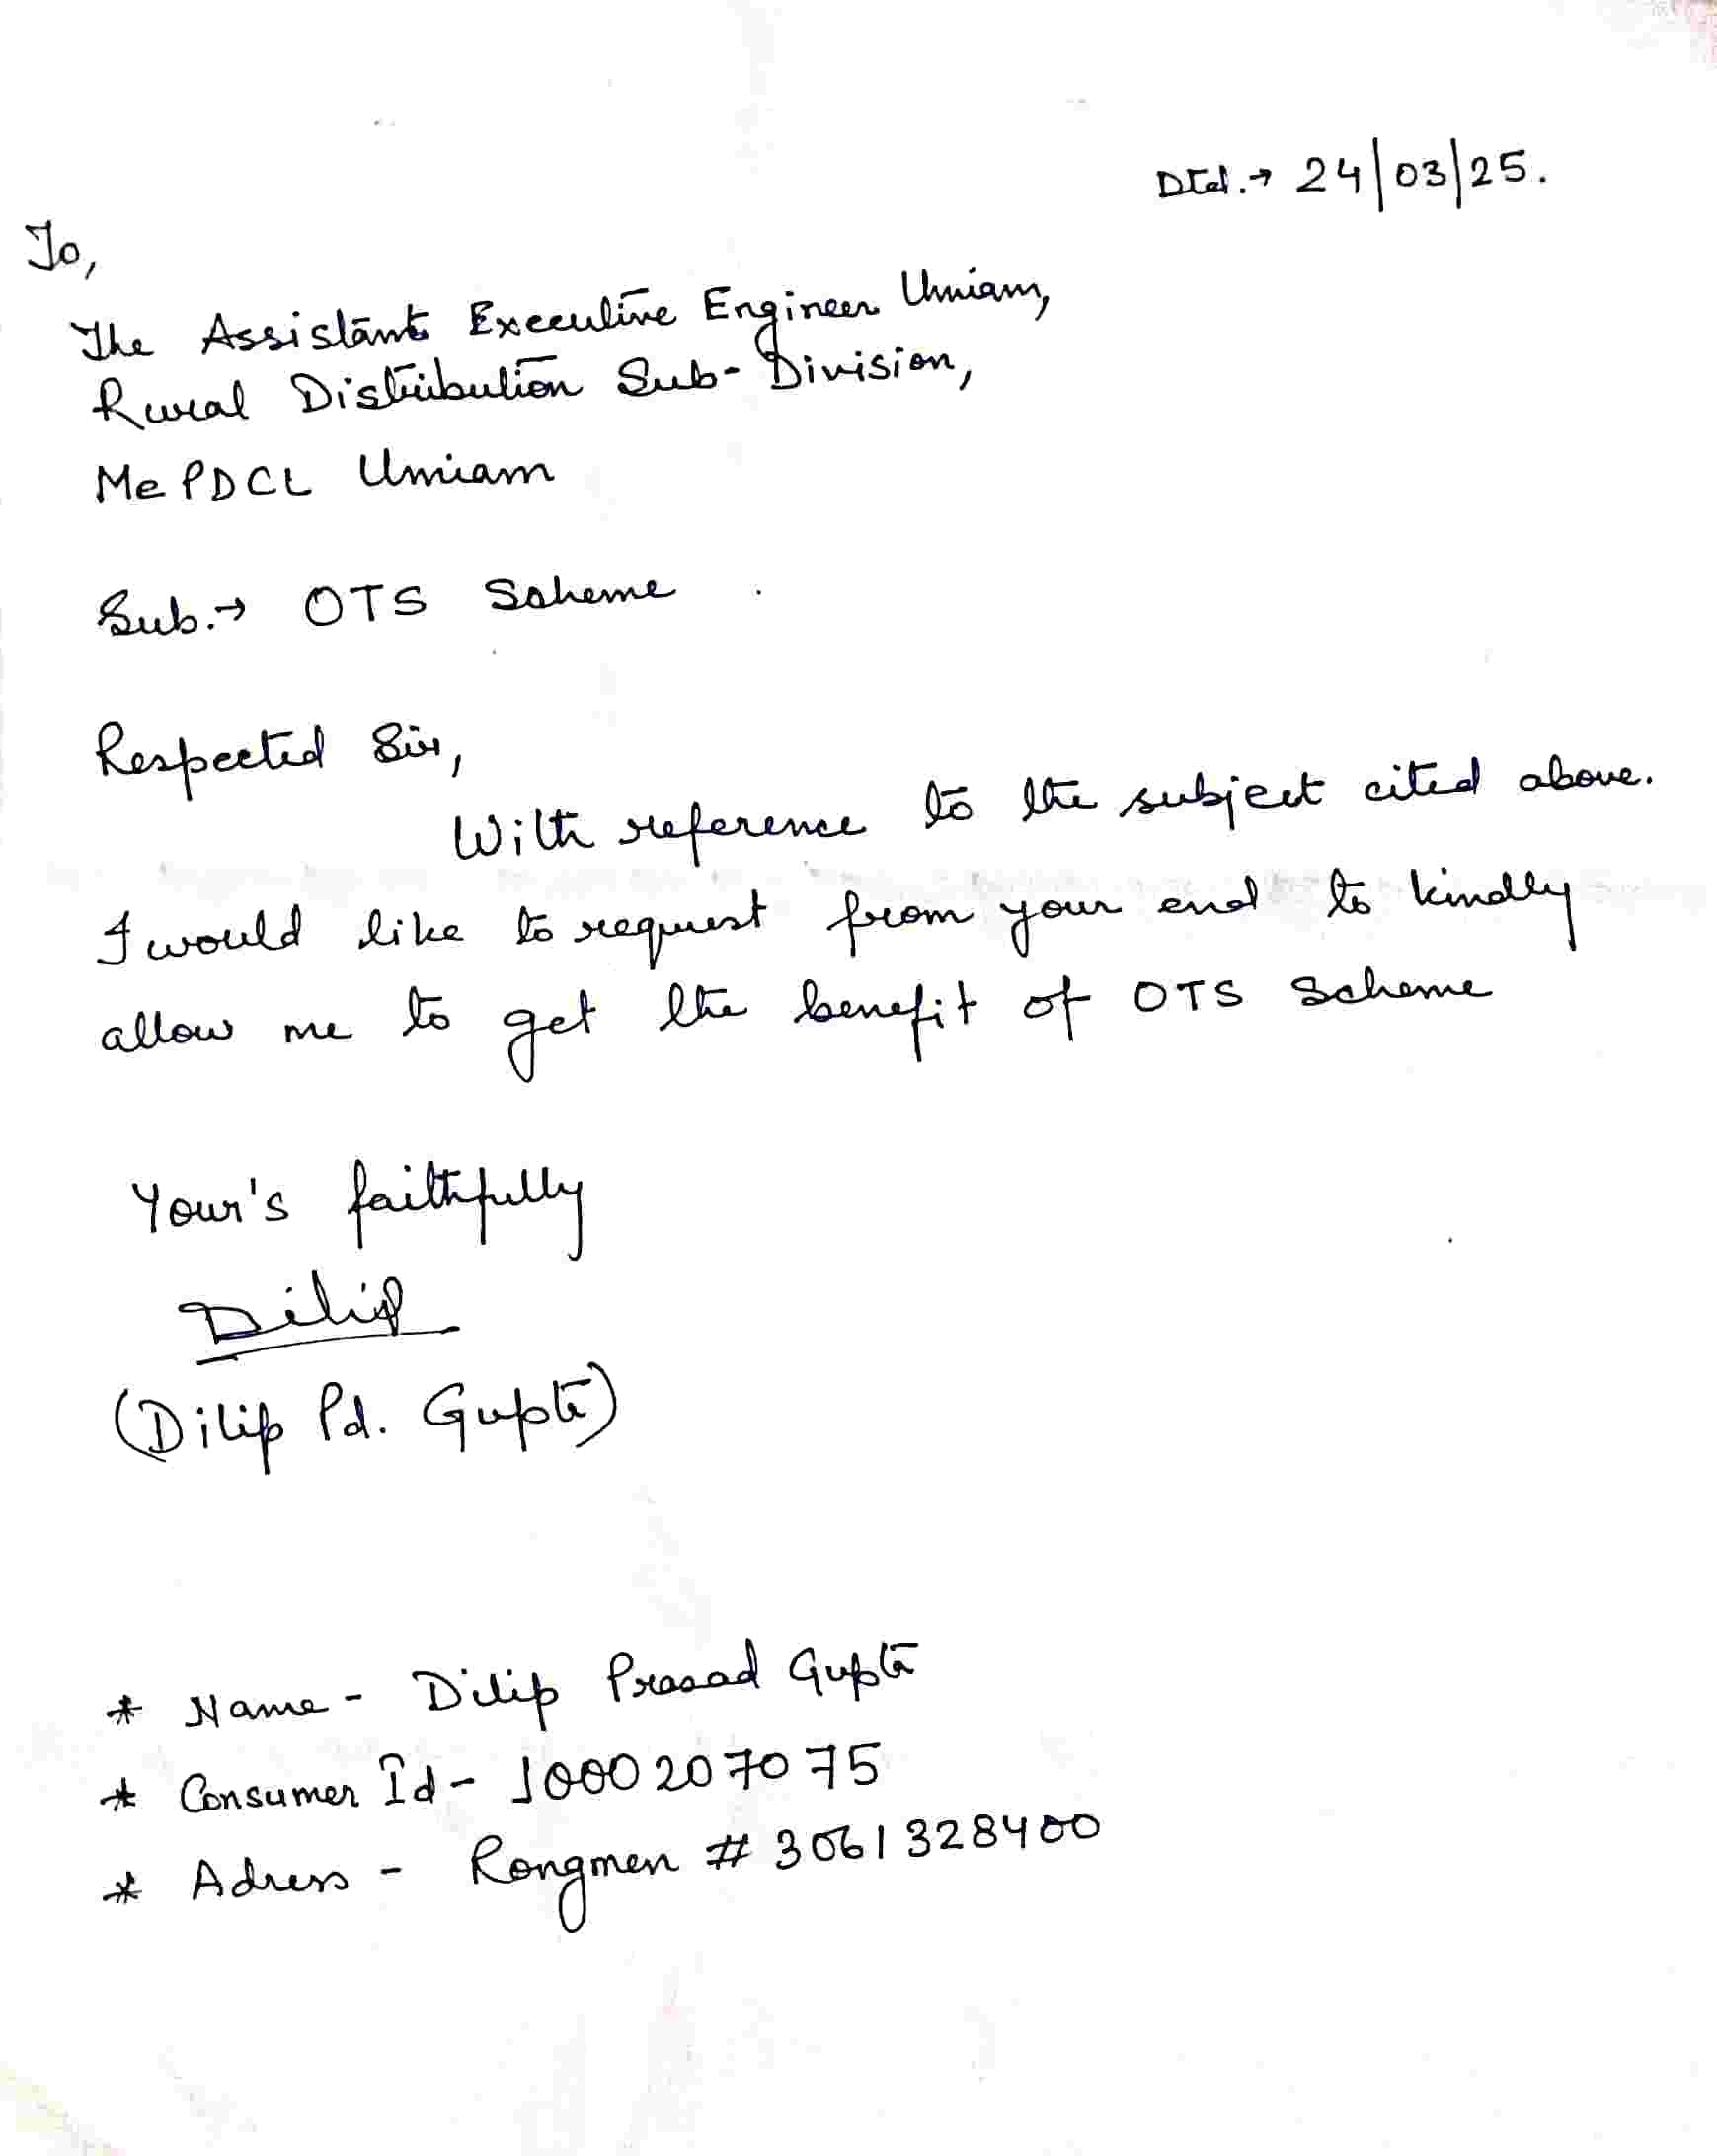 Dtd.→ 24/03/25.
To,
The Assistant Executive Engineer Umiam,
Rural Distribution Sub-Division,
MePDCL Umiam
Sub.→ OTS Scheme
Respected Sir,
With reference to the subject cited above.
I would like to request from your end to kindly
allow me to get the benefit of OTS Scheme
Your's faithfully
Dilip
(Dilip Pd. Gupta)
* Name - Dilip Prasad Gupta
* Consumer Id - 1000207075
* Adress - Rongmen # 3061328400